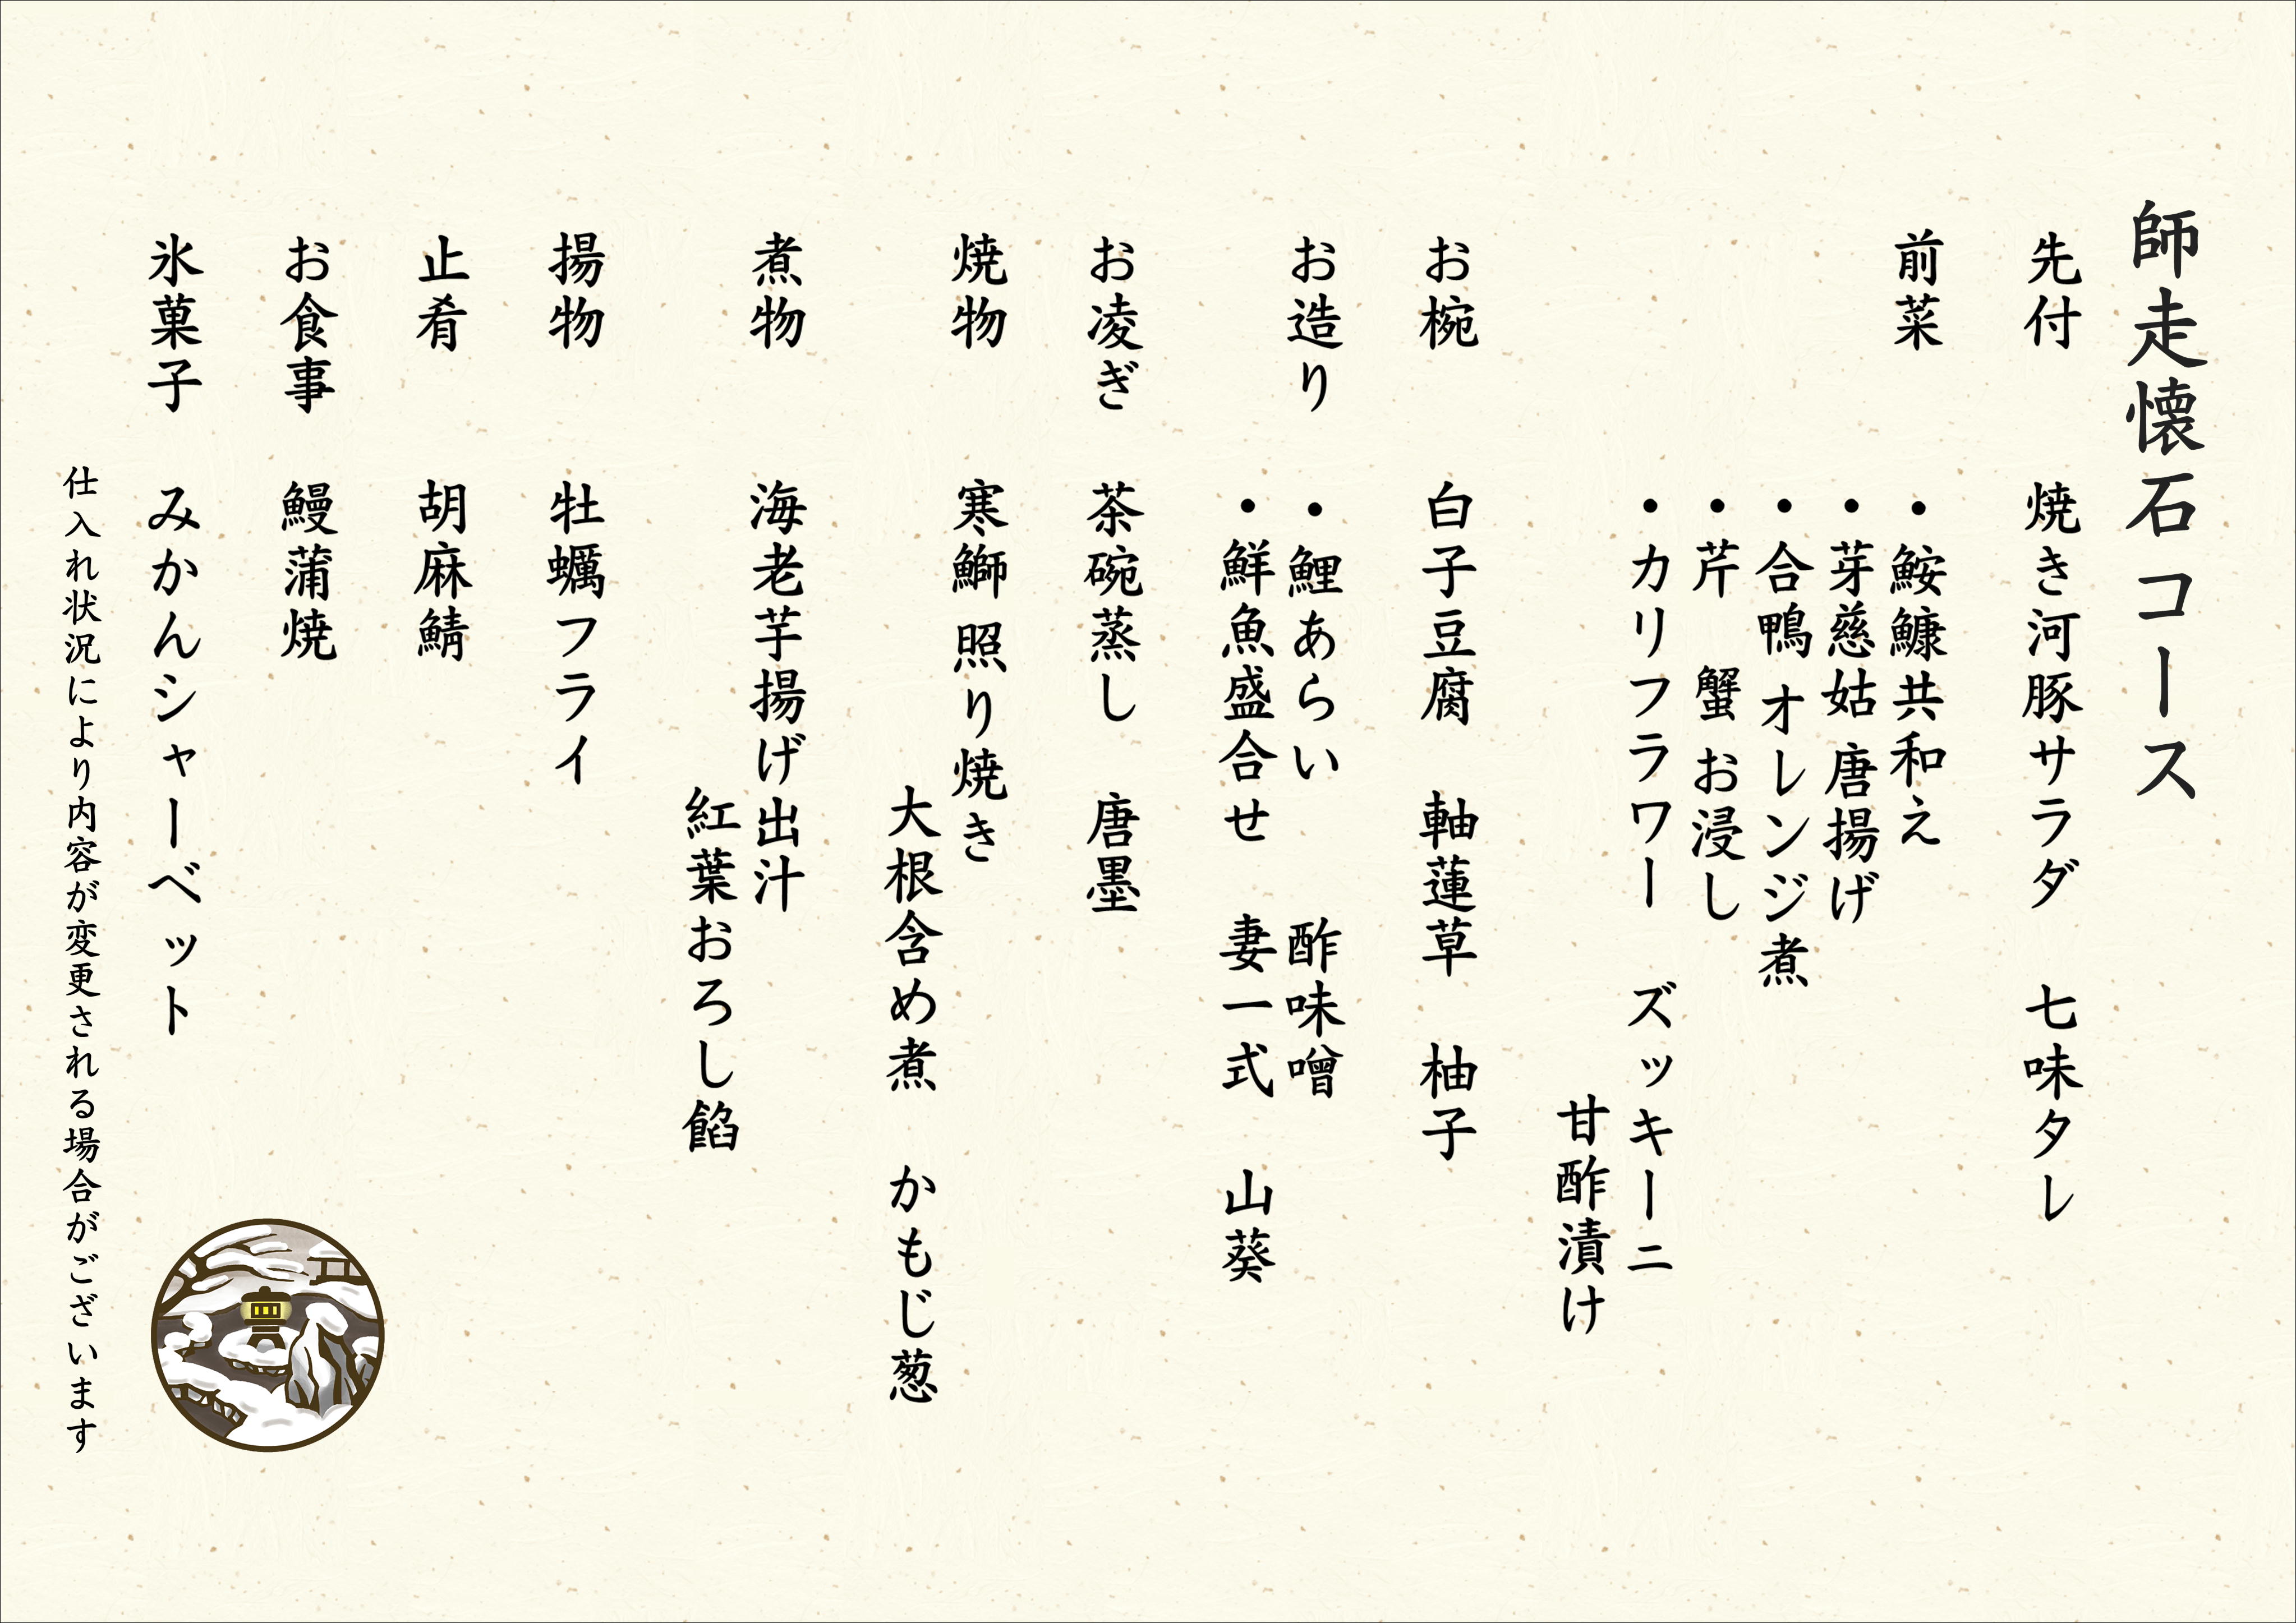 師走懐石コース
先付　焼き河豚サラダ　七味タレ
前菜　・鮟鱇共和え
・芽慈姑 唐揚げ
・合鴨 オレンジ煮
・芹　蟹 お浸し
・カリフラワー　ズッキーニ
甘酢漬け
お椀　白子豆腐　軸蓮草　柚子
お造り　・鯉あらい　酢味噌
・鮮魚盛合せ　妻一式　山葵
お凌ぎ　茶碗蒸し　唐墨
焼物　寒鰤 照り焼き
大根含め煮　かもじ葱
煮物　海老芋揚げ出汁
紅葉おろし餡
揚物　牡蠣フライ
止肴　胡麻鯖
お食事　鰻蒲焼
氷菓子　みかんシャーベット
仕入れ状況により内容が変更される場合がございます